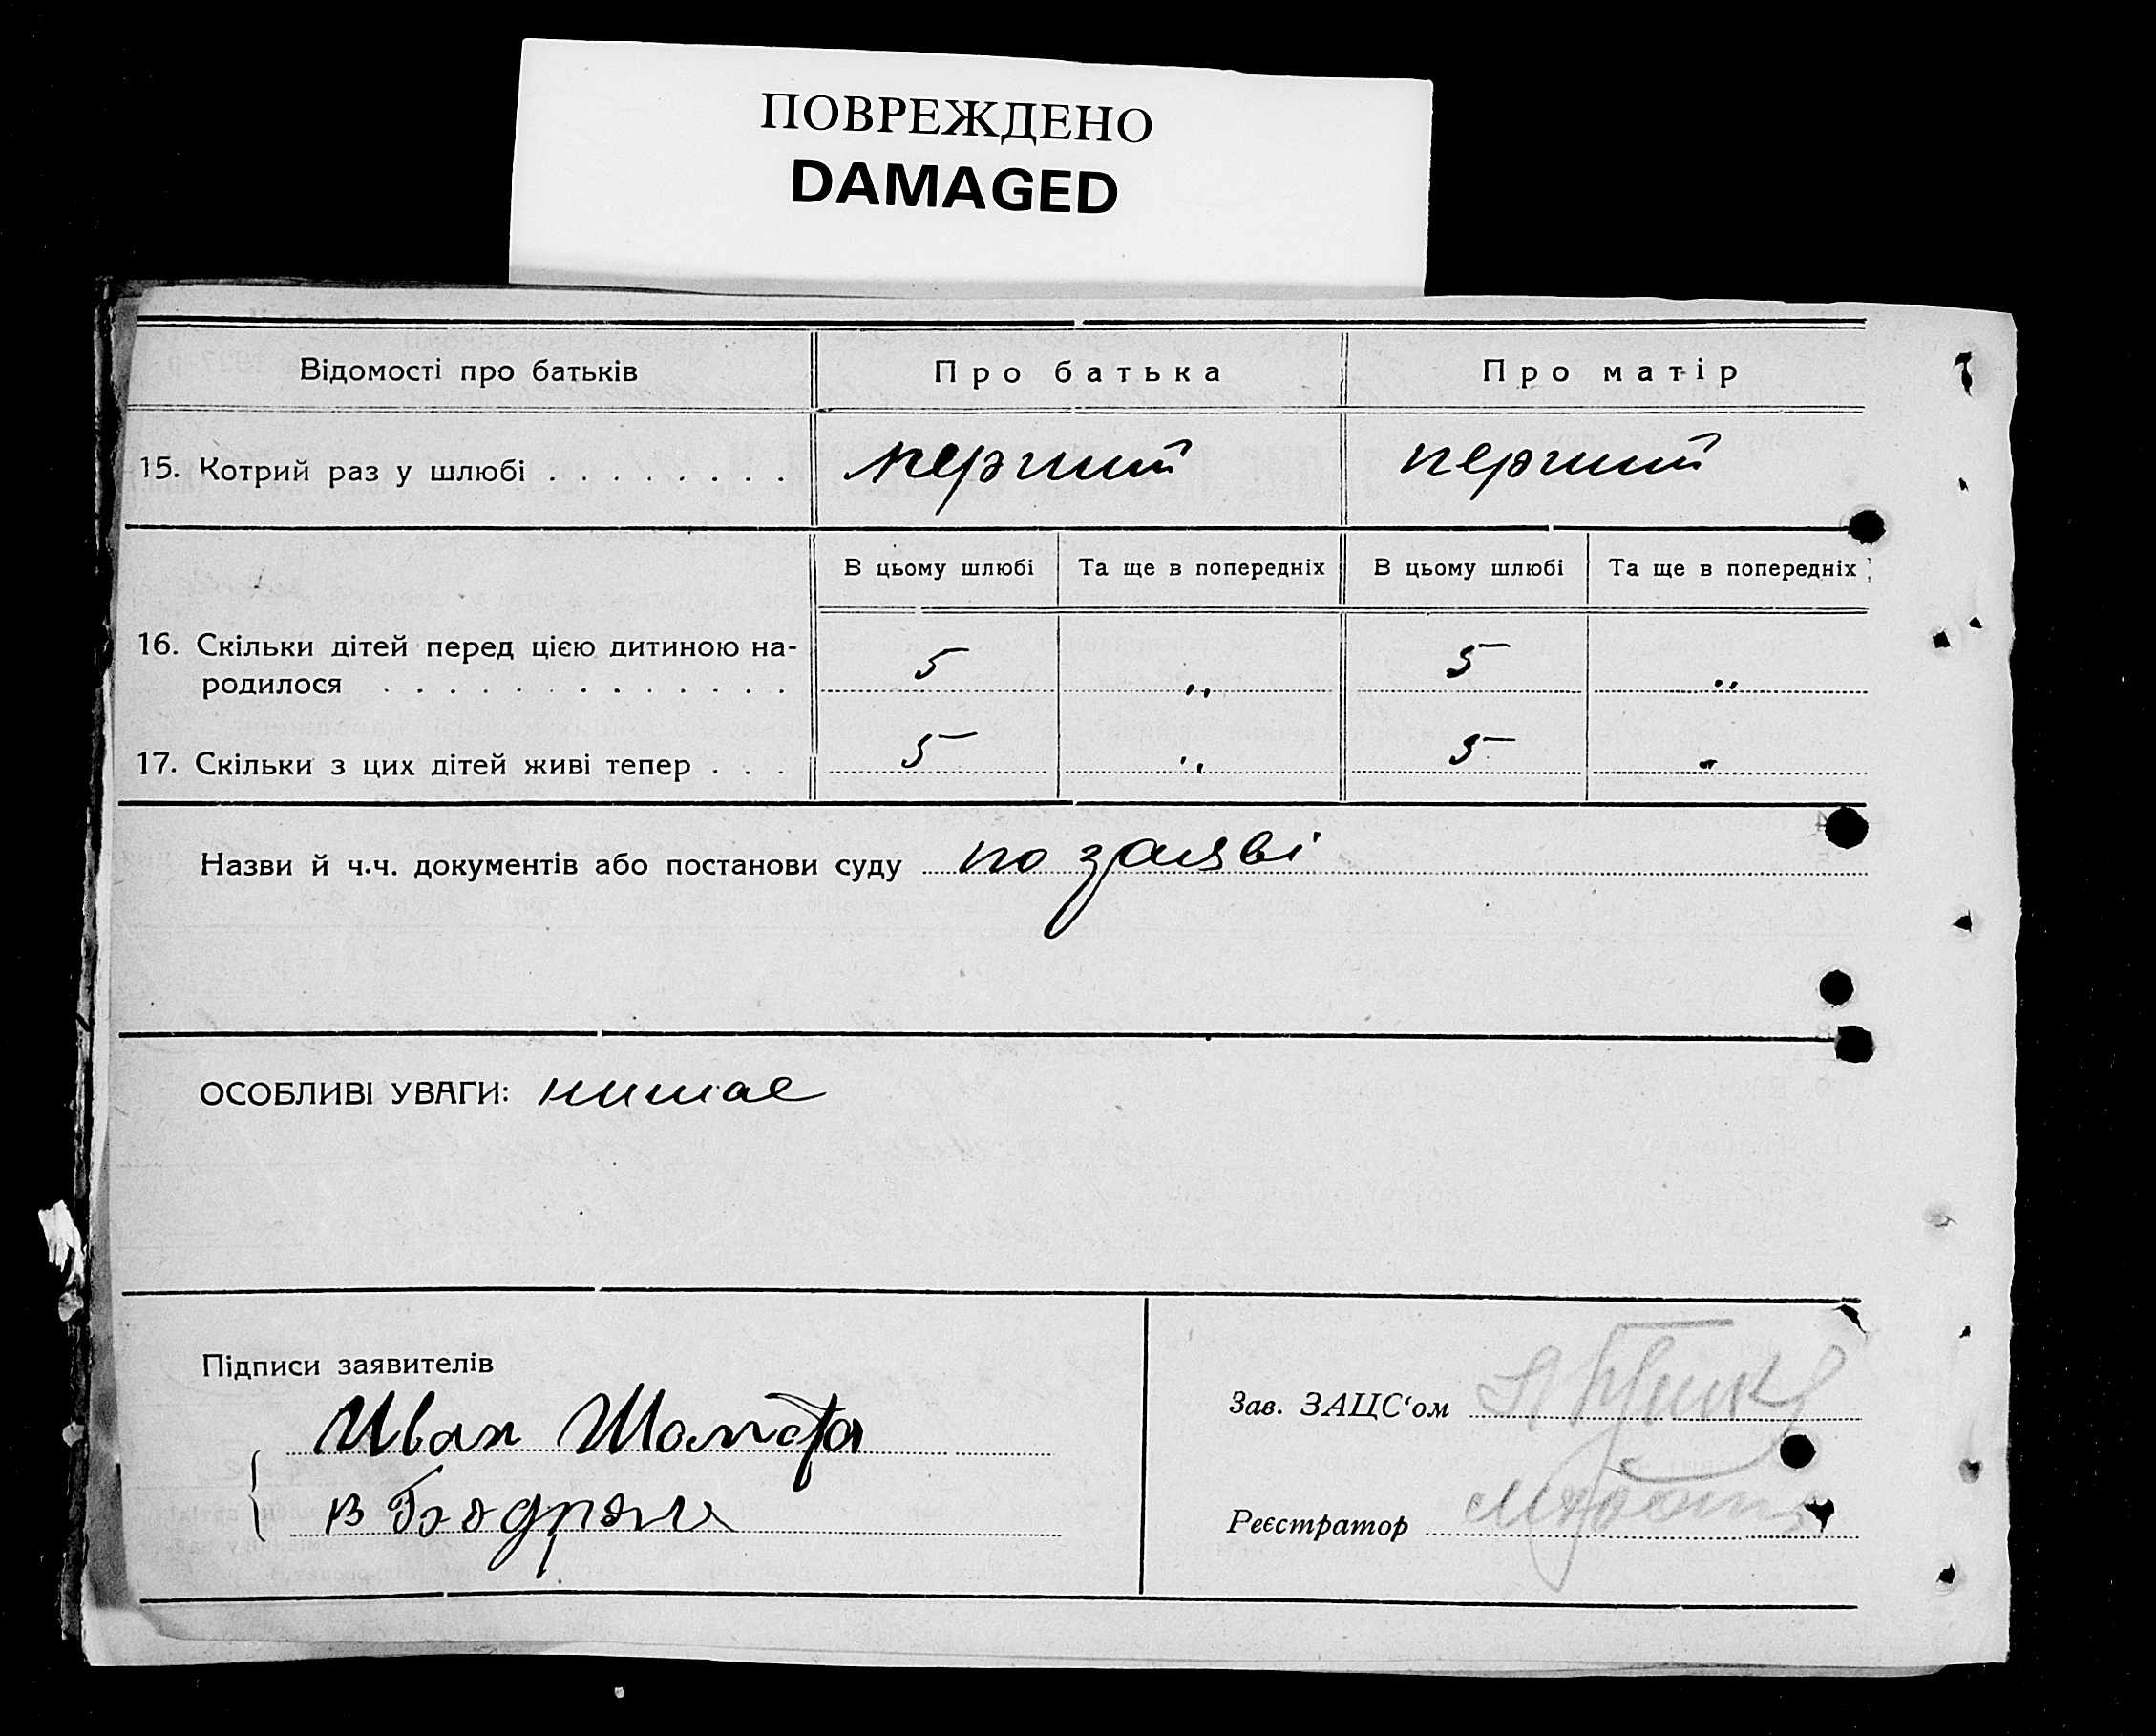 ПОВРЕЖДЕНО
DAMAGED
Відомості про батьків Про батька Про матір
15. Котрий раз у шлюбі . . . . . . . . перший перший
В цьому шлюбі Та ще в попередніх В цьому шлюбі Та ще в попередніх
16. Скільки дітей перед цією дитиною на-
родилося . . . . . . . . . . . . . 5 „ 5 „
17. Скільки з цих дітей живі тепер . . . 5 „ 5 „
Назви й ч.ч. документів або постанови суду по заяві
ОСОБЛИВІ УВАГИ: нимае
Підписи заявителів
Иван
В
Зав. ЗАЦС‘ом
Реєстратор